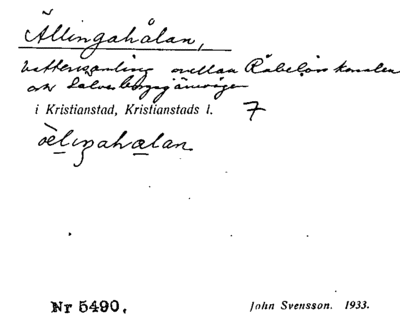 Ällingahålan,
Vattensamling mellan Råbelövskanalen
och Sölvesborgsjärnvägen
i Kristianstad, Kristianstads l. 7
Nr 5490.
John Svensson. 1933.